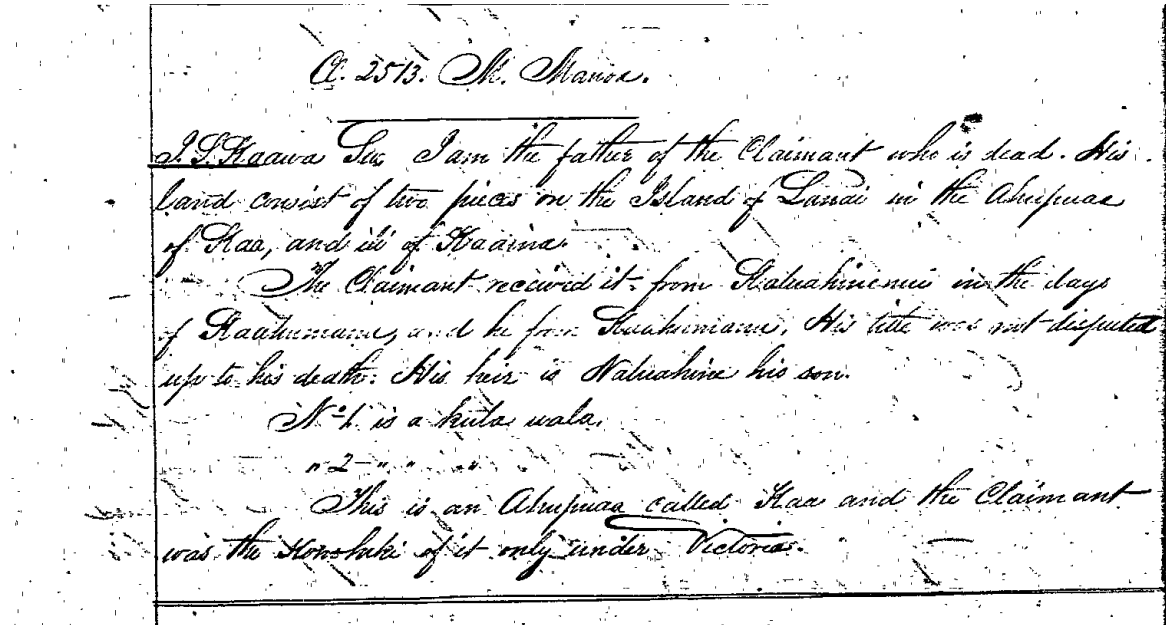 Cl. 2513. M. Manoa.
J. S. Kaawa Sw. I am the father of the Claimant who is dead. His
land consist of two pieces on the Island of Lanai in the Ahupuaa
of Kaa, and ili of Kaaina.
The Claimant received it from Kaluahinenui in the days
of Kaahumanu, and he from Kaahumanu. His title was not disputed
up to his death. His heir is Naluahine his son.
No 1. is a kula uala.
" 2 - " " "
This is an Ahupuaa called Kaa and the Claimant
was the Konohiki of it only under Victoria.